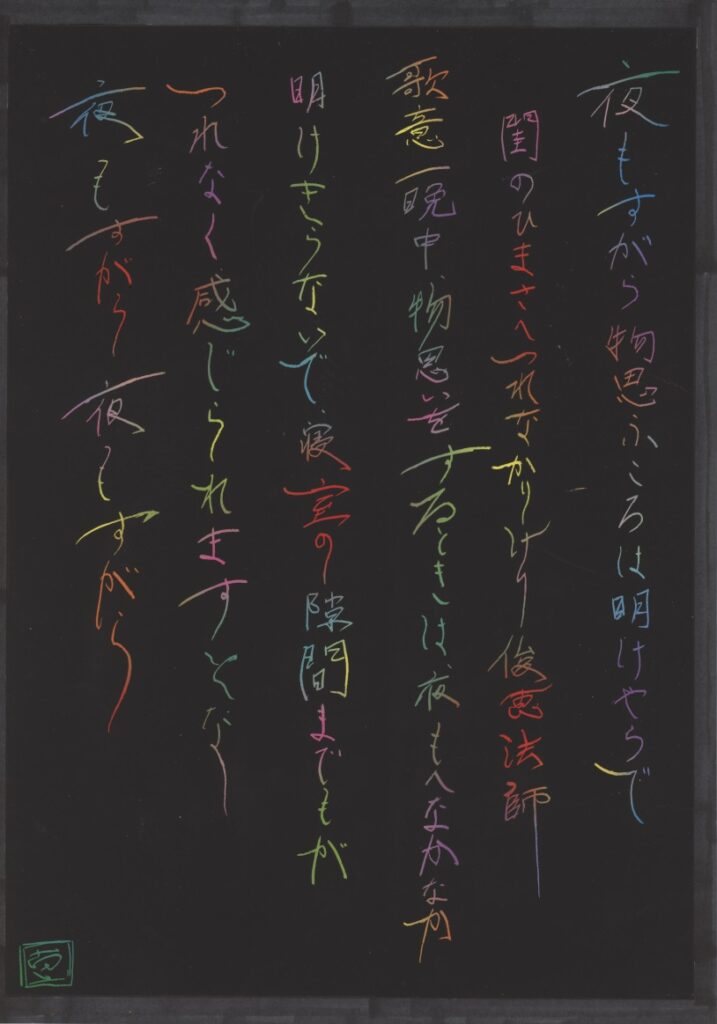 夜もすがら物思ふころは明けやらで
閨のひまさへつれなかりけり 俊恵法師
歌意一晩中、物思いをするときは、夜もへなかなか
明けきらないで、寝室の隙間までもが
つれなく感じられますそなー
夜もすがら夜もすがら